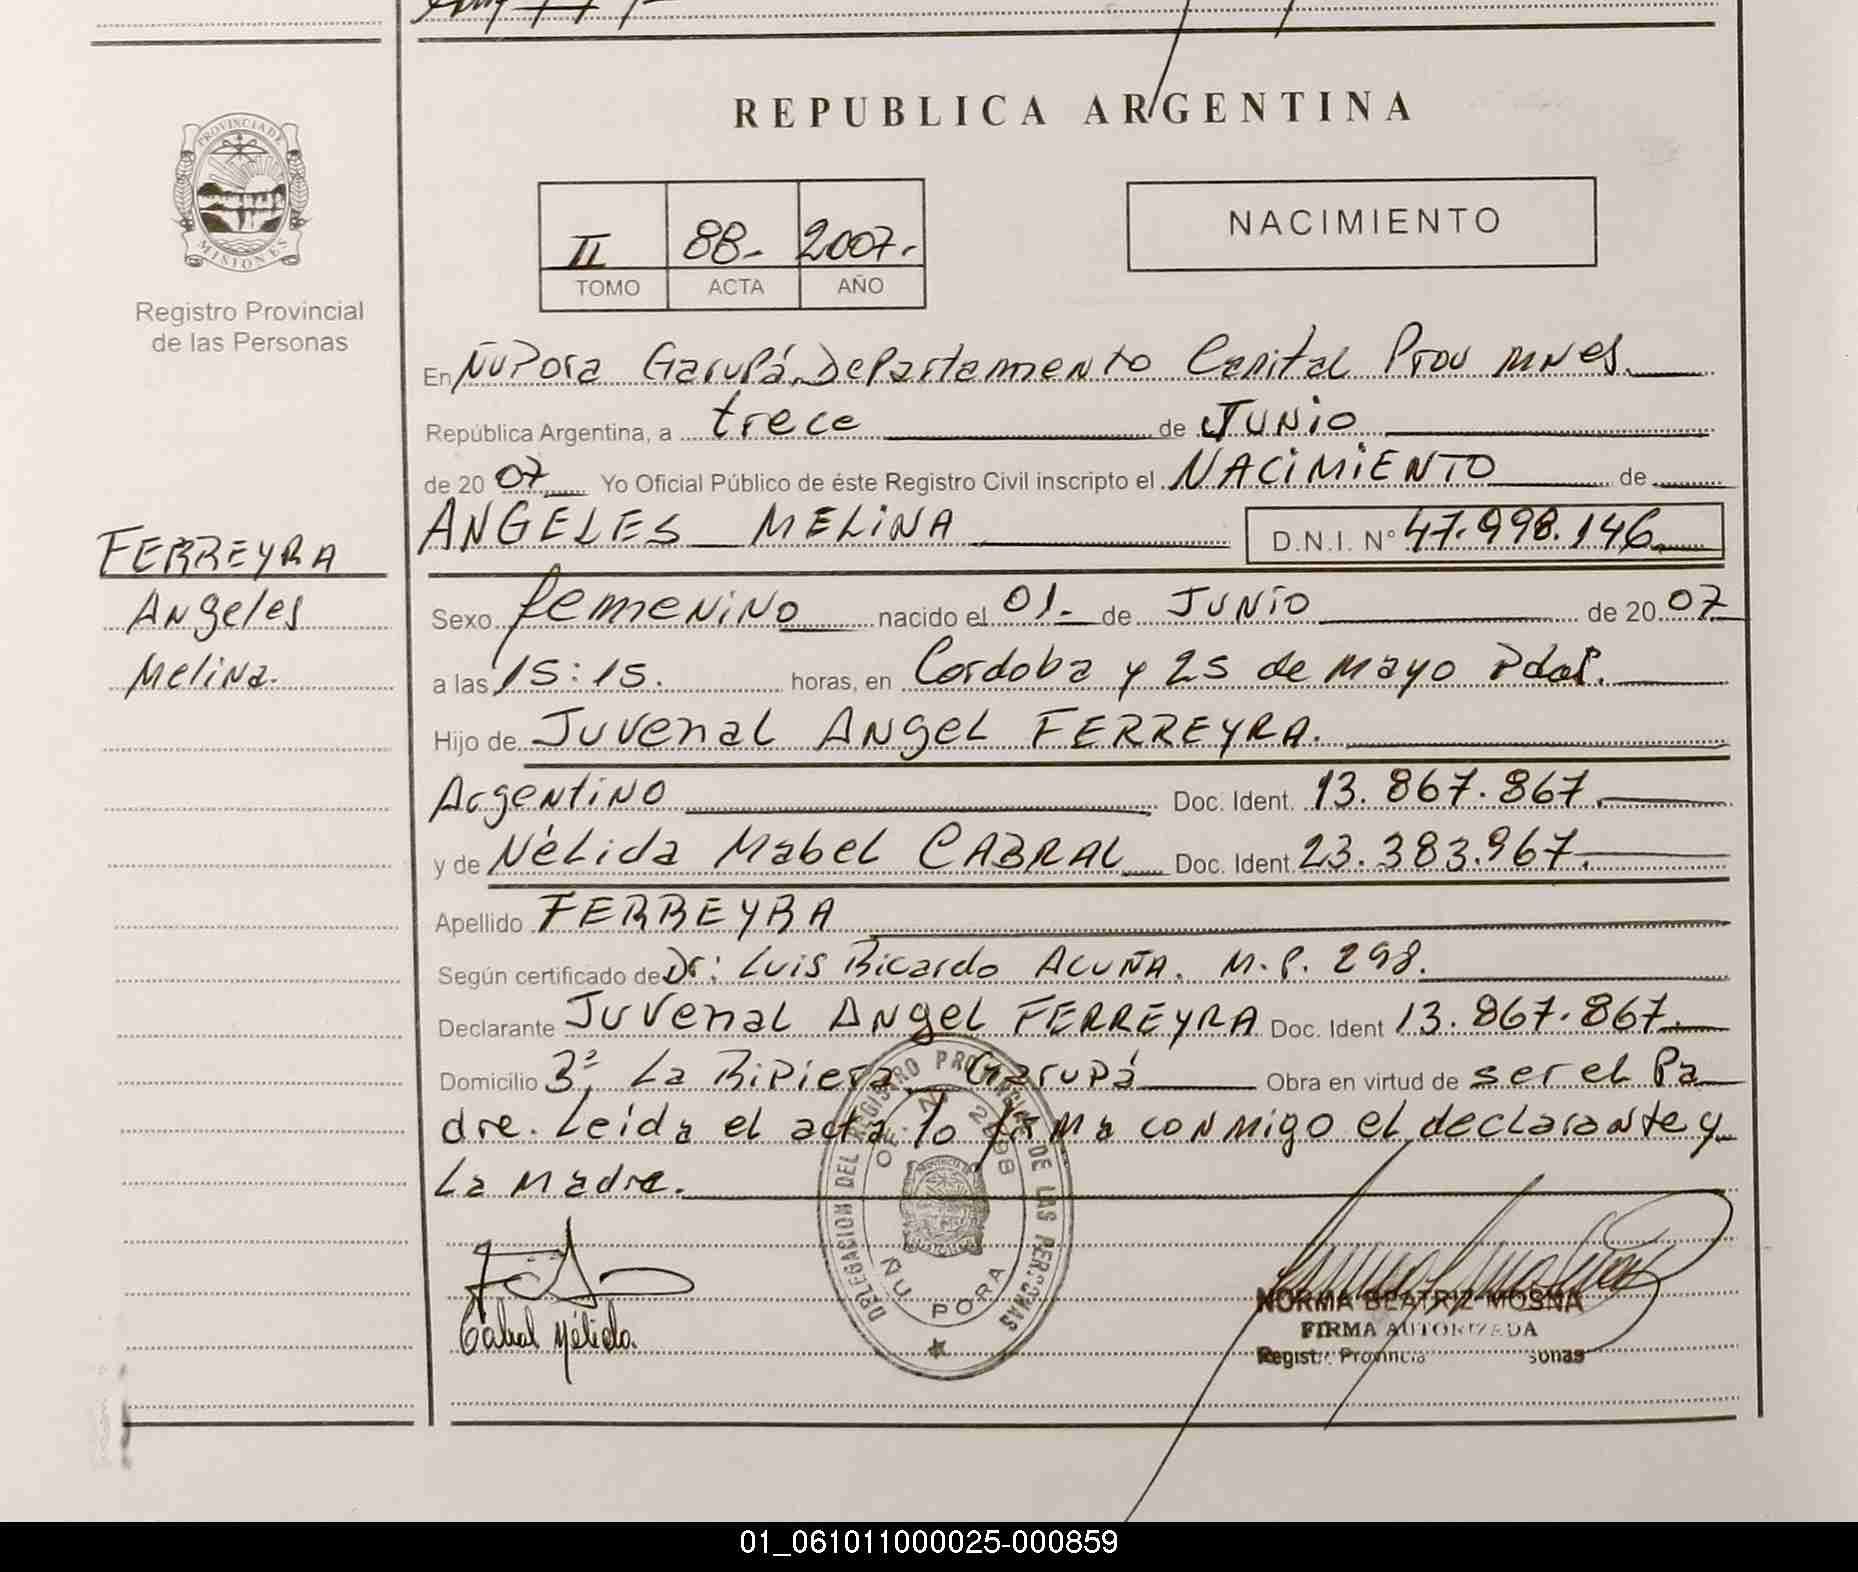 REPUBLICA ARGENTINA
PROVINCIA DE
MISIONES
Registro Provincial
de las Personas
II 88- 2007.
TOMO ACTA AÑO
NACIMIENTO
En Ñu Pora Garupá, Departamento Capital Prov Mnes.
República Argentina, a trece de Junio
de 2007 Yo Oficial Público de éste Registro Civil inscripto el NACIMIENTO de
ANGELES MELINA D.N.I. N° 47.998.146
FERREYRA
Angeles
Melina.
Sexo femenino nacido el 01- de Junio de 2007
a las 15:15. horas, en Cordoba y 25 de Mayo Pdas.
Hijo de Juvenal Angel FERREYRA.
Argentino Doc. Ident. 13.867.867.
y de Nélida Mabel CABRAL Doc. Ident. 23.383.967.
Apellido FERREYRA
Según certificado de Dr: Luis Ricardo ACUÑA. M.P. 298.
Declarante Juvenal Angel FERREYRA Doc. Ident 13.867.867.
Domicilio La Ripiera, Garupá Obra en virtud de ser el Pa
dre. Leída el acta lo firma conmigo el declarante y
La Madre.
DELEGACION DEL REGISTRO PROVINCIAL DE LAS PERSONAS
ÑU PORA
Cabral Nélida.
NORMA BEATRIZ MOSNA
FIRMA AUTORIZADA
01_061011000025-000859